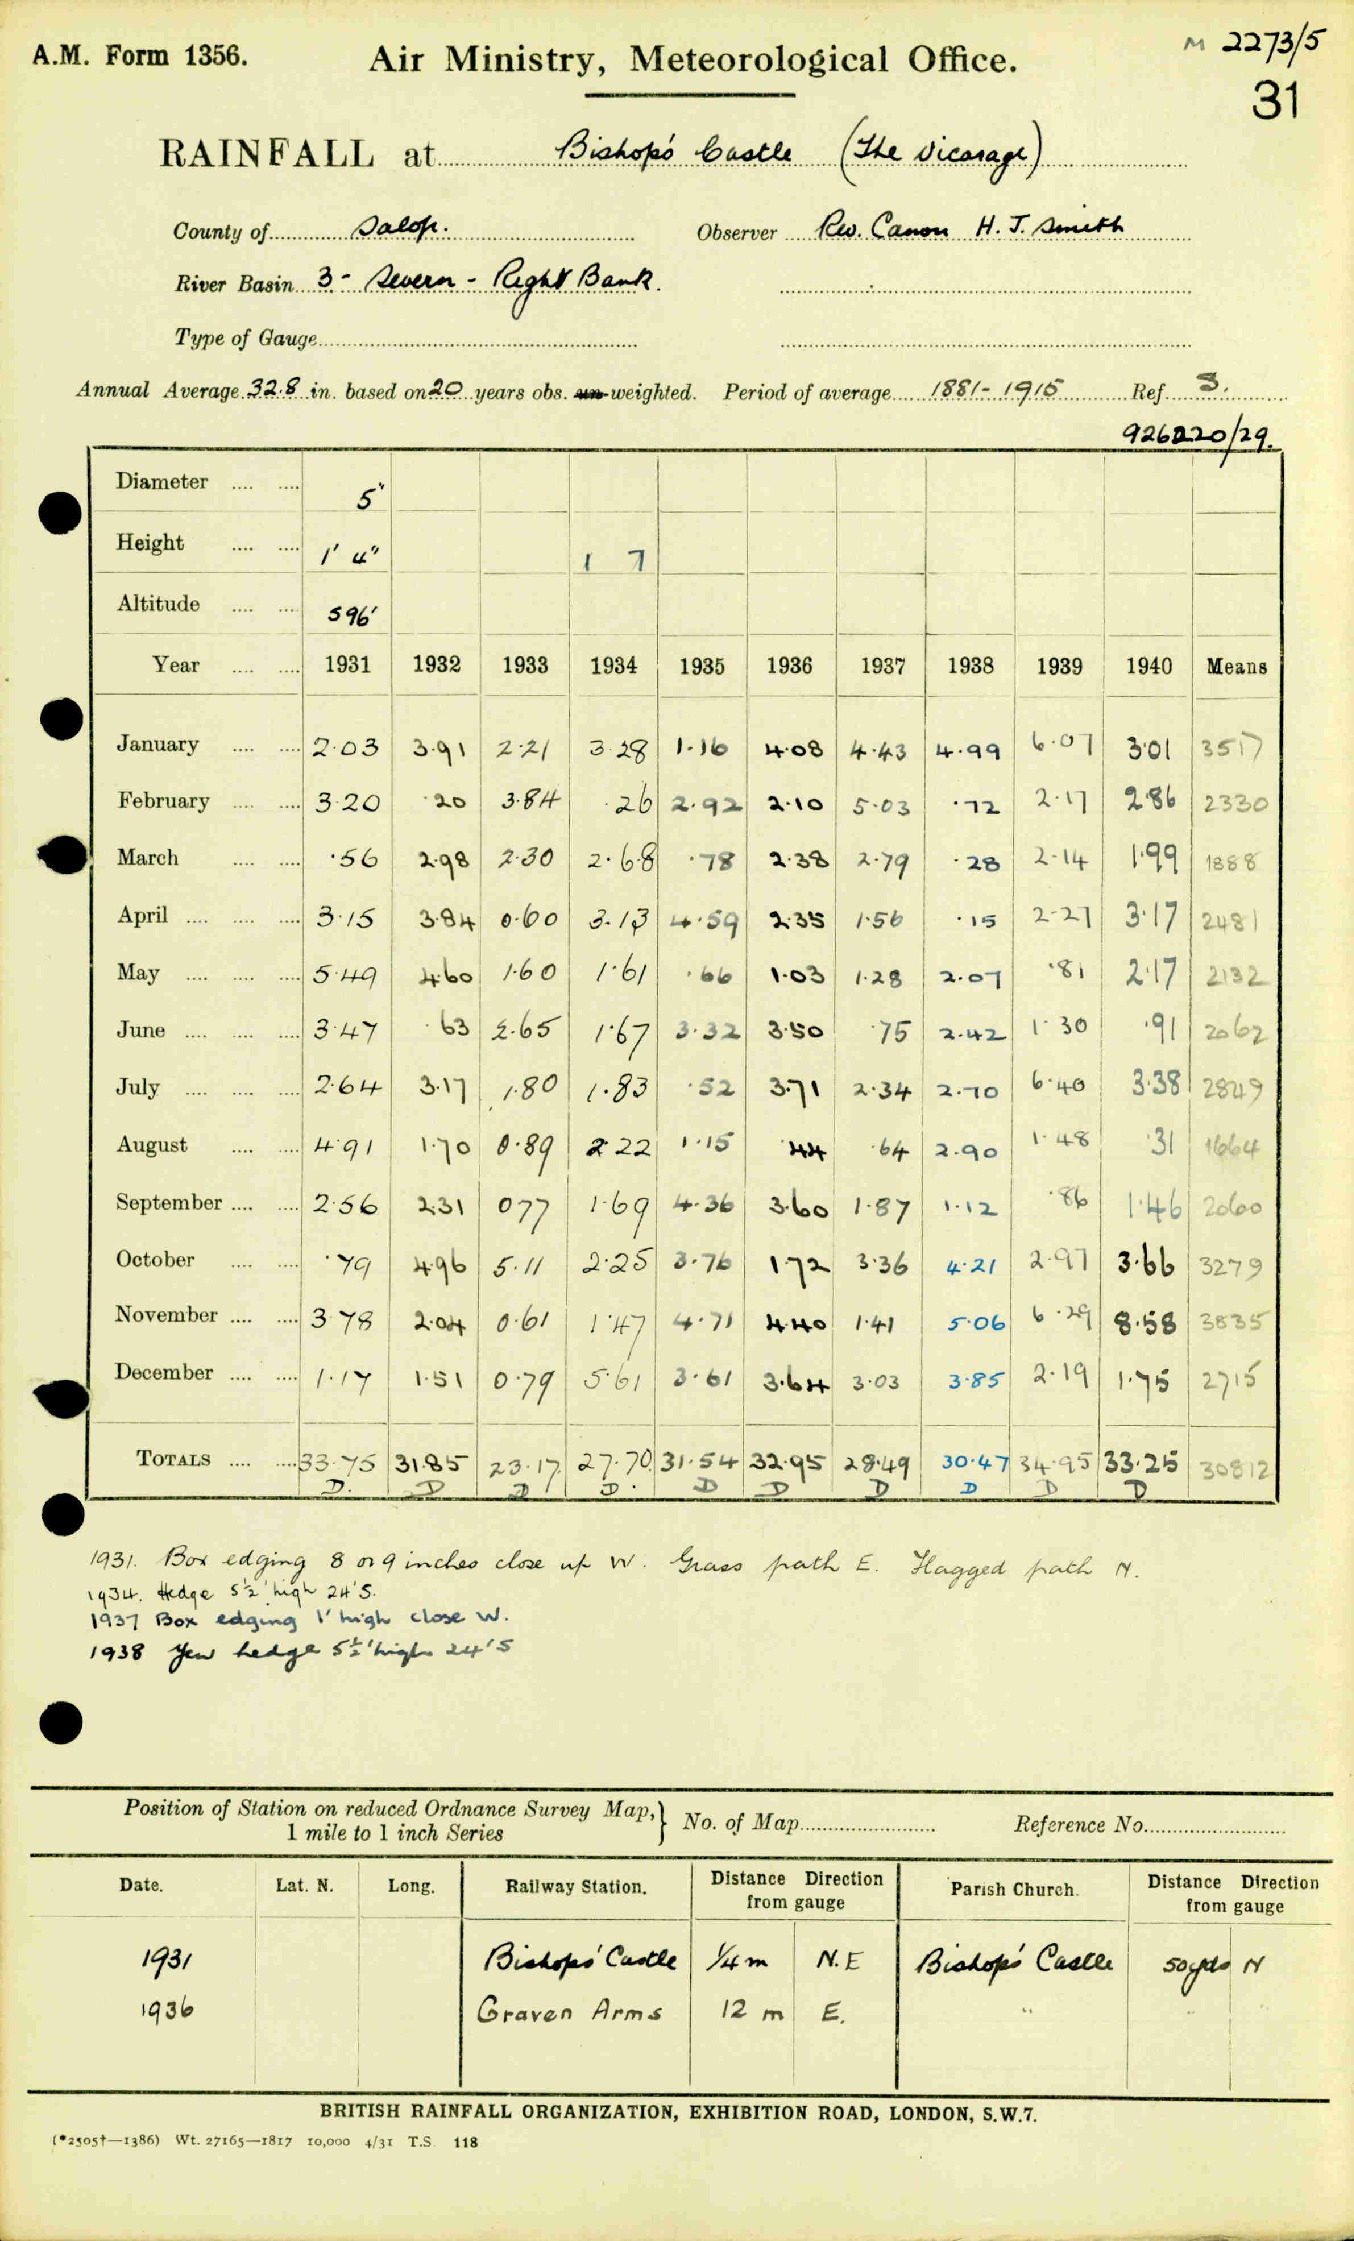 A.M. Form 1356. Air Ministry, Meteorological Office. M 2273/5
31
RAINFALL at Bishop's Castle (The Vicarage)
County of Salop. Observer Rev. Canon H. J. Smith
River Basin 3 - Severn - Right Bank.
Type of Gauge
Annual Average 32.8 in. based on 20 years obs. un-weighted. Period of average 1881-1915 Ref. 3.
926220/29.
Diameter 5"
Height 1' 4" 1 7
Altitude 596'
Year 1931 1932 1933 1934 1935 1936 1937 1938 1939 1940 Means
January 2.03 3.91 2.21 3.28 1.16 4.08 4.43 4.99 6.07 3.01 3517
February 3.20 .20 3.84 .26 2.92 2.10 5.03 .72 2.17 2.86 2330
March .56 2.98 2.30 2.68 .78 2.38 2.79 .28 2.14 1.99 1888
April 3.15 3.84 0.60 3.13 4.59 2.35 1.56 .15 2.27 3.17 2481
May 5.49 4.60 1.60 1.61 .66 1.03 1.28 2.07 .81 2.17 2132
June 3.47 .63 2.65 1.67 3.32 3.50 .75 2.42 1.30 .91 2062
July 2.64 3.17 1.80 1.83 .52 3.71 2.34 2.70 6.40 3.38 2849
August 4.91 1.70 0.89 2.22 1.15 .44 .64 2.90 1.48 .31 1664
September 2.56 2.31 0.77 1.69 4.36 3.60 1.87 1.12 .86 1.46 2060
October .79 4.96 5.11 2.25 3.76 1.72 3.36 4.21 2.97 3.66 3279
November 3.78 2.04 0.61 1.47 4.71 4.40 1.41 5.06 6.29 8.58 3835
December 1.17 1.51 0.79 5.61 3.61 3.64 3.03 3.85 2.19 1.75 2715
TOTALS 33.75 31.85 23.17 27.70 31.54 32.95 28.49 30.47 34.95 33.25 30812
D. D D D. D D D D D D
1931. Box edging 8 or 9 inches close up W. Grass path E. Flagged path N.
1934. Hedge 5½' high 24' S.
1937 Box edging 1' high close W.
1938 Yew hedge 5½' high 24' S
Position of Station on reduced Ordnance Survey Map, 1 mile to 1 inch Series } No. of Map Reference No.
Date. Lat. N. Long. Railway Station. Distance Direction from gauge Parish Church. Distance Direction from gauge
1931 Bishops' Castle ¼ m N.E Bishop's Castle 50 yds N
1936 Craven Arms 12 m E. " " "
BRITISH RAINFALL ORGANIZATION, EXHIBITION ROAD, LONDON, S.W.7.
(*2505†—1386) Wt. 27165—1817 10,000 4/31 T.S. 118